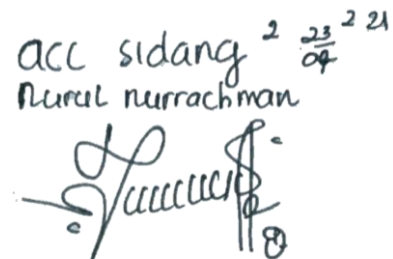 acc sidang 2 23/04 2 21
Nurul nurrachman